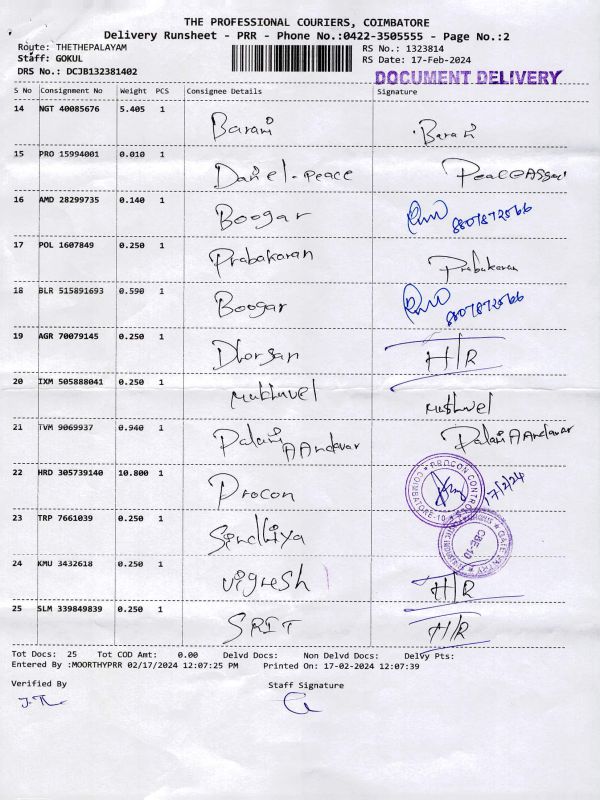 THE PROFESSIONAL COURIERS, COIMBATORE
Delivery Runsheet - PRR - Phone No.:0422-3505555 - Page No.:2
Route: THETHEPALAYAM RS No.: 1323814
Staff: GOKUL RS Date: 17-Feb-2024
DRS No.: DCJB132381402 DOCUMENT DELIVERY
S No Consignment No Weight PCS Consignee Details Signature
14 NGT 40085676 5.405 1 Barani Barani
15 PRO 15994001 0.010 1 Daniel-Peace
16 AMD 28299735 0.140 1 Boogar 8807872566
17 POL 1607849 0.250 1 Prabakaran Prabakaran
18 BLR 515891693 0.590 1 Boogar 8807872566
19 AGR 70079145 0.250 1 H/R
20 IXM 505888041 0.250 1 Muthuvel Muthuvel
21 TVM 9069937 0.940 1 Palani AAndavar Palani AAndavar
22 HRD 305739140 10.800 1 Procon PROCON CONTROLS COIMBATORE-10
23 TRP 7661039 0.250 1 Sindhiya GATE ENTRY CBE-10
24 KMU 3432618 0.250 1 Vignesh H/R
25 SLM 339849839 0.250 1 SRIT H/R
Tot Docs: 25 Tot COD Amt: 0.00 Delvd Docs: Non Delvd Docs: Delvy Pts:
Entered By :MOORTHYPRR 02/17/2024 12:07:25 PM Printed On: 17-02-2024 12:07:39
Verified By Staff Signature